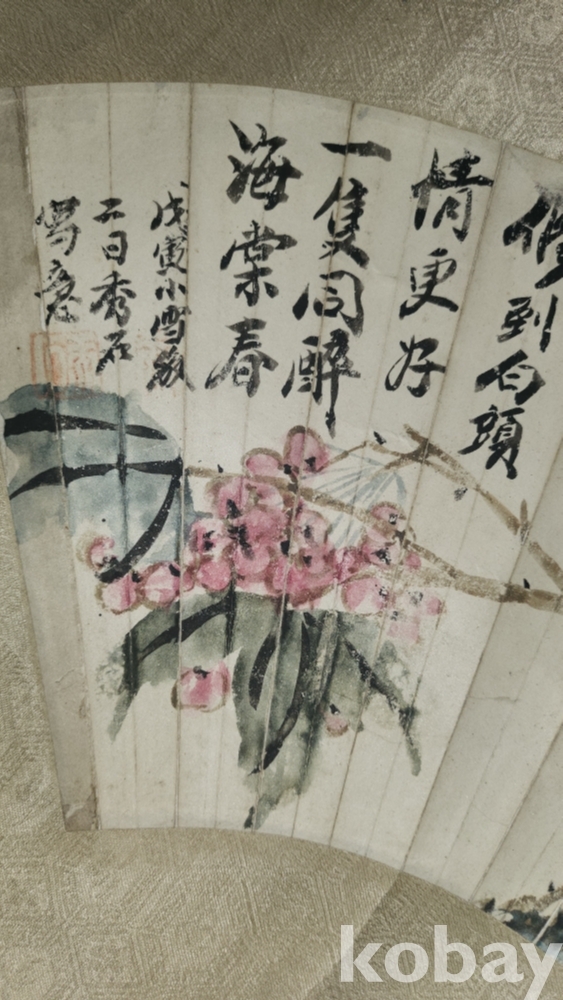 到白頭
情更好
一隻同醉
海棠春
戊寅小雪後
二日秀石
寫意
kobay